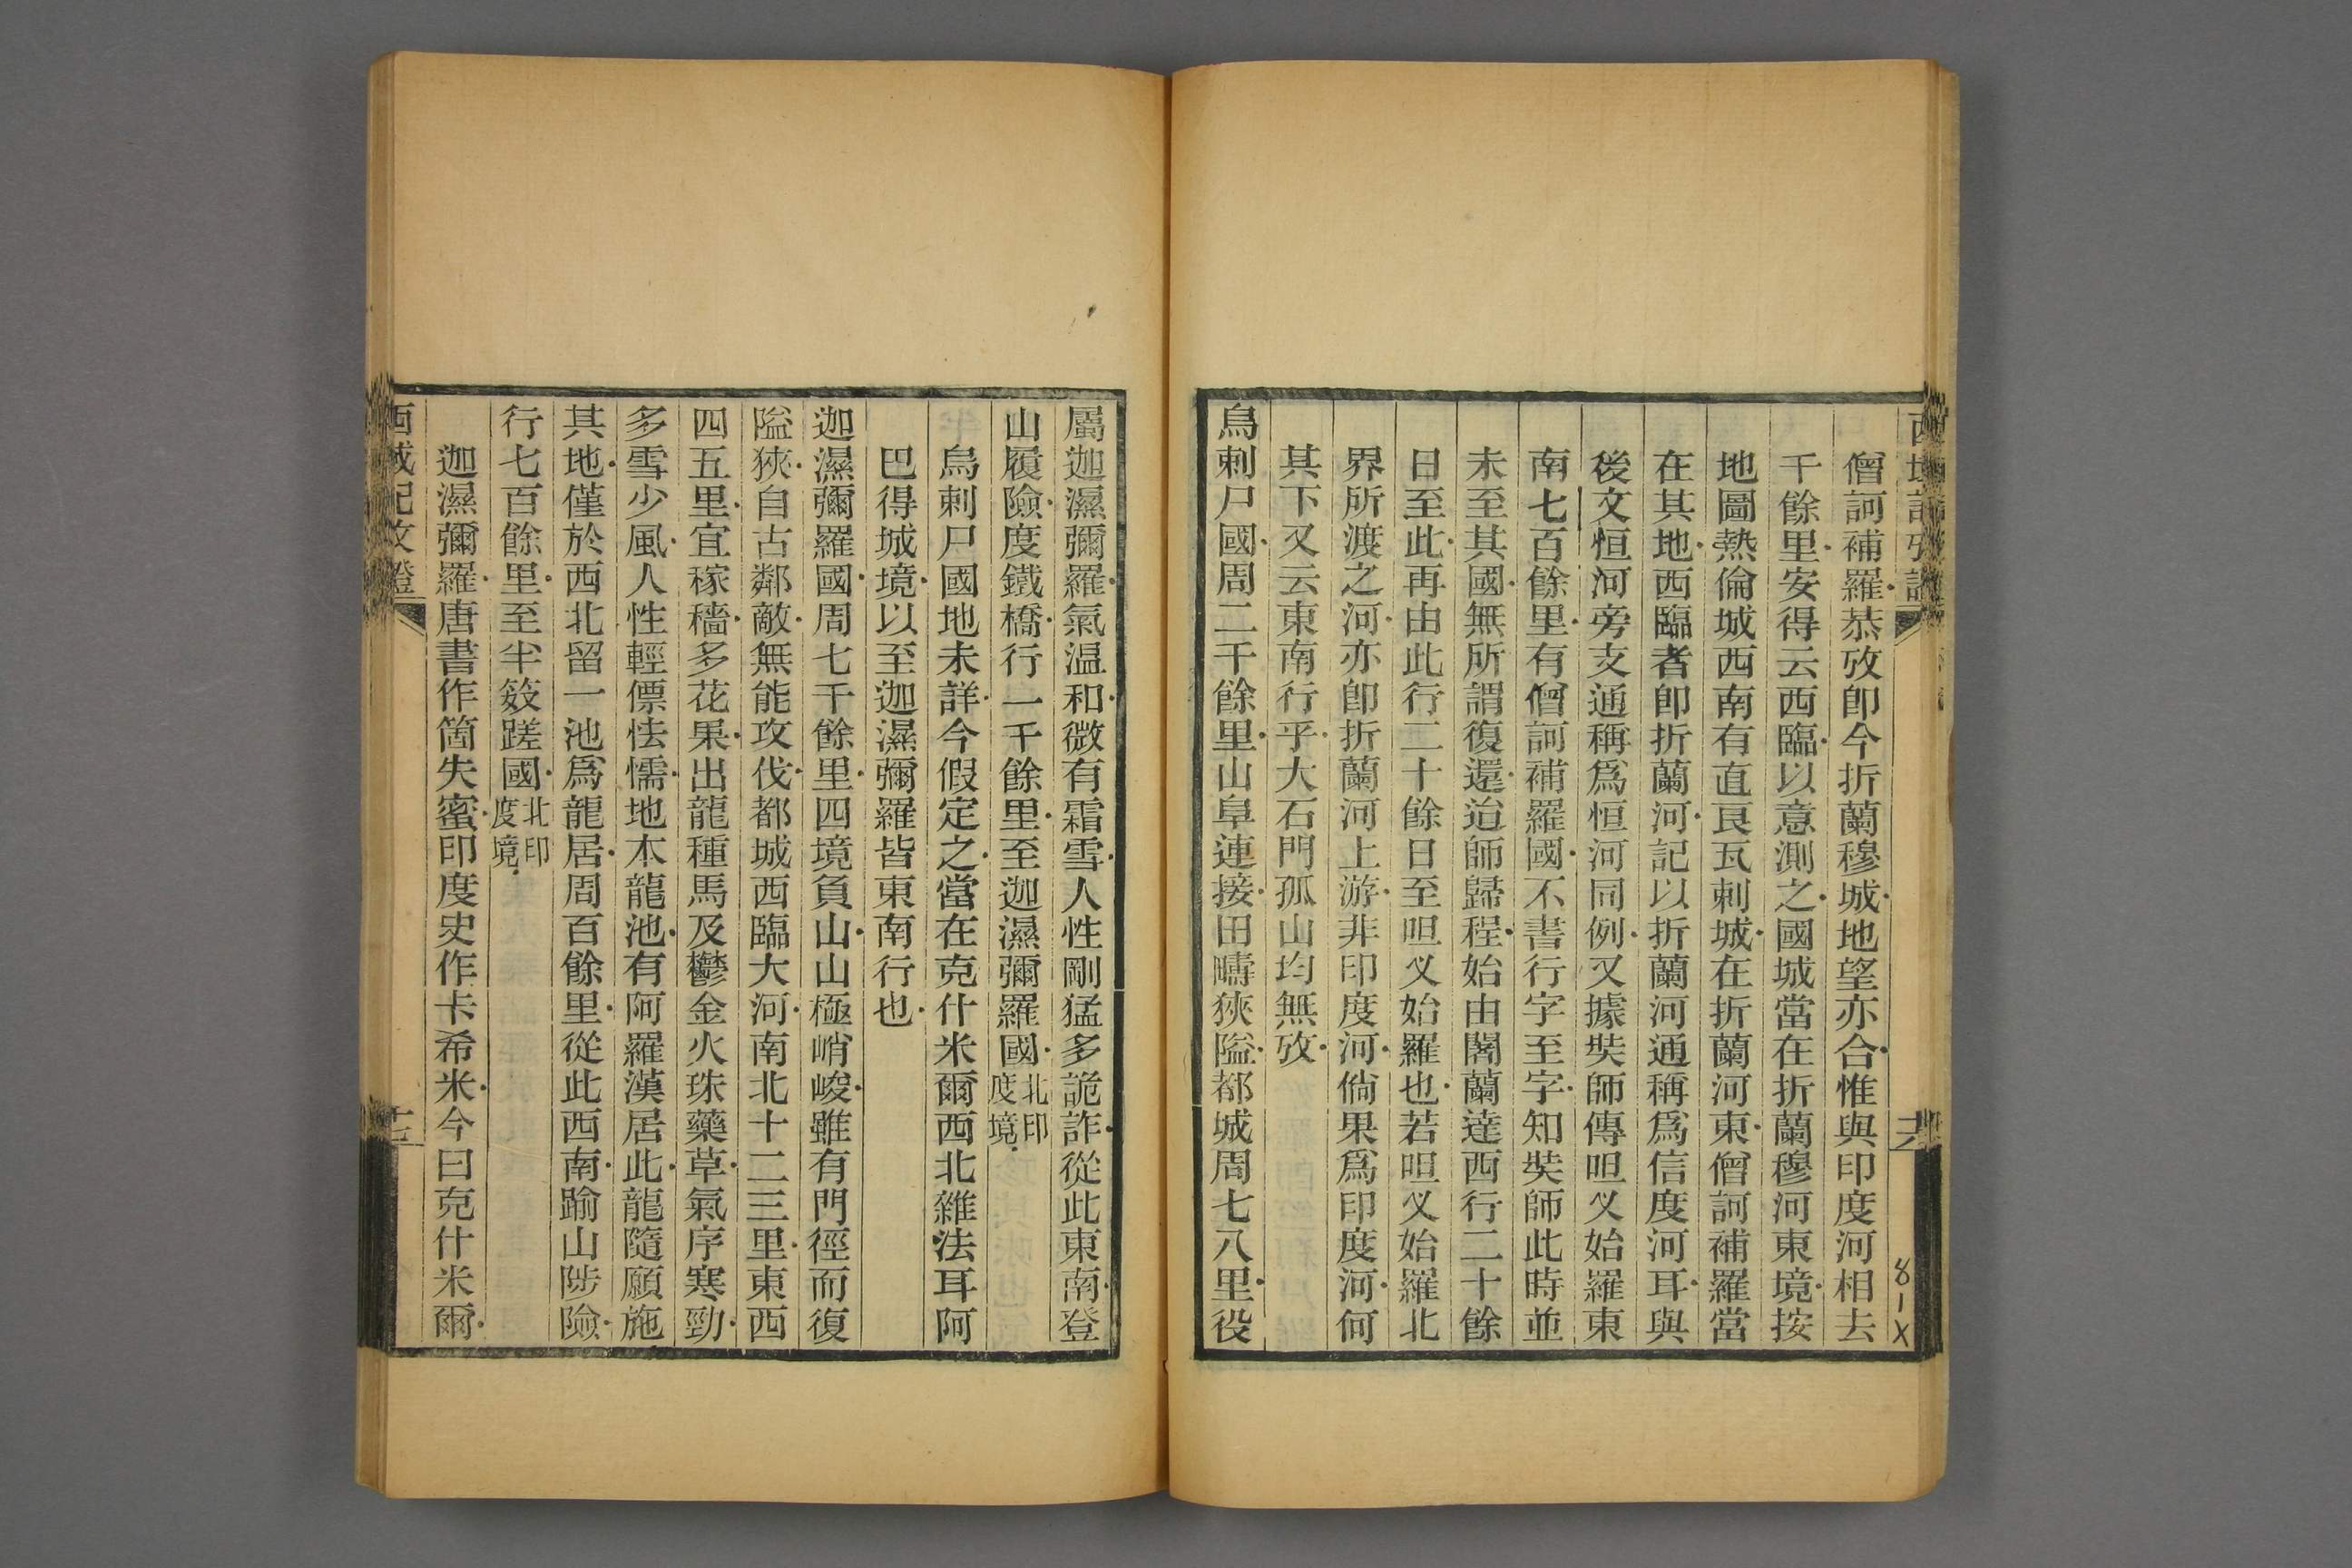 僧訶補羅恭攷卽今折蘭穆城地望亦合惟與印度河相去
千餘里安得云西臨以意測之國城當在折蘭穆河東境按
地圖熱倫城西南有直艮瓦剌城在折蘭河東僧訶補羅當
在其地西臨者卽折蘭河記以折蘭河通稱爲信度河耳與
後文恒河旁支通稱爲恒河同例又據奘師傳呾义始羅東
南七百餘里有僧訶補羅國不書行字至字知奘師此時並
未至其國無所謂復還迨師歸程始由闍蘭達西行二十餘
日至此再由此行二十餘日至呾义始羅也若呾义始羅北
界所渡之河亦卽折蘭河上游非印度河倘果爲印度河何
其下又云東南行乎大石門孤山均無攷
烏剌尸國周二千餘里山阜連接田疇狹隘都城周七八里役
屬迦濕彌羅氣温和微有霜雪人性剛猛多詭詐從此東南登
山履險度鐵橋行一千餘里至迦濕彌羅國北印度境
烏剌尸國地未詳今假定之當在克什米爾西北雜法耳阿
巴得城境以至迦濕彌羅皆東南行也
迦濕彌羅國周七千餘里四境負山山極峭峻雖有門徑而復
隘狹自古鄰敵無能攻伐都城西臨大河南北十二三里東西
四五里宜稼穡多花果出龍種馬及鬱金火珠藥草氣序寒勁
多雪少風人性輕僄怯懦地本龍池有阿羅漢居此龍隨願施
其地僅於西北留一池爲龍居周百餘里從此西南踰山陟險
行七百餘里至半笯蹉國北印度境
迦濕彌羅唐書作箇失蜜印度史作卡希米今曰克什米爾
西域記攷證
8-X